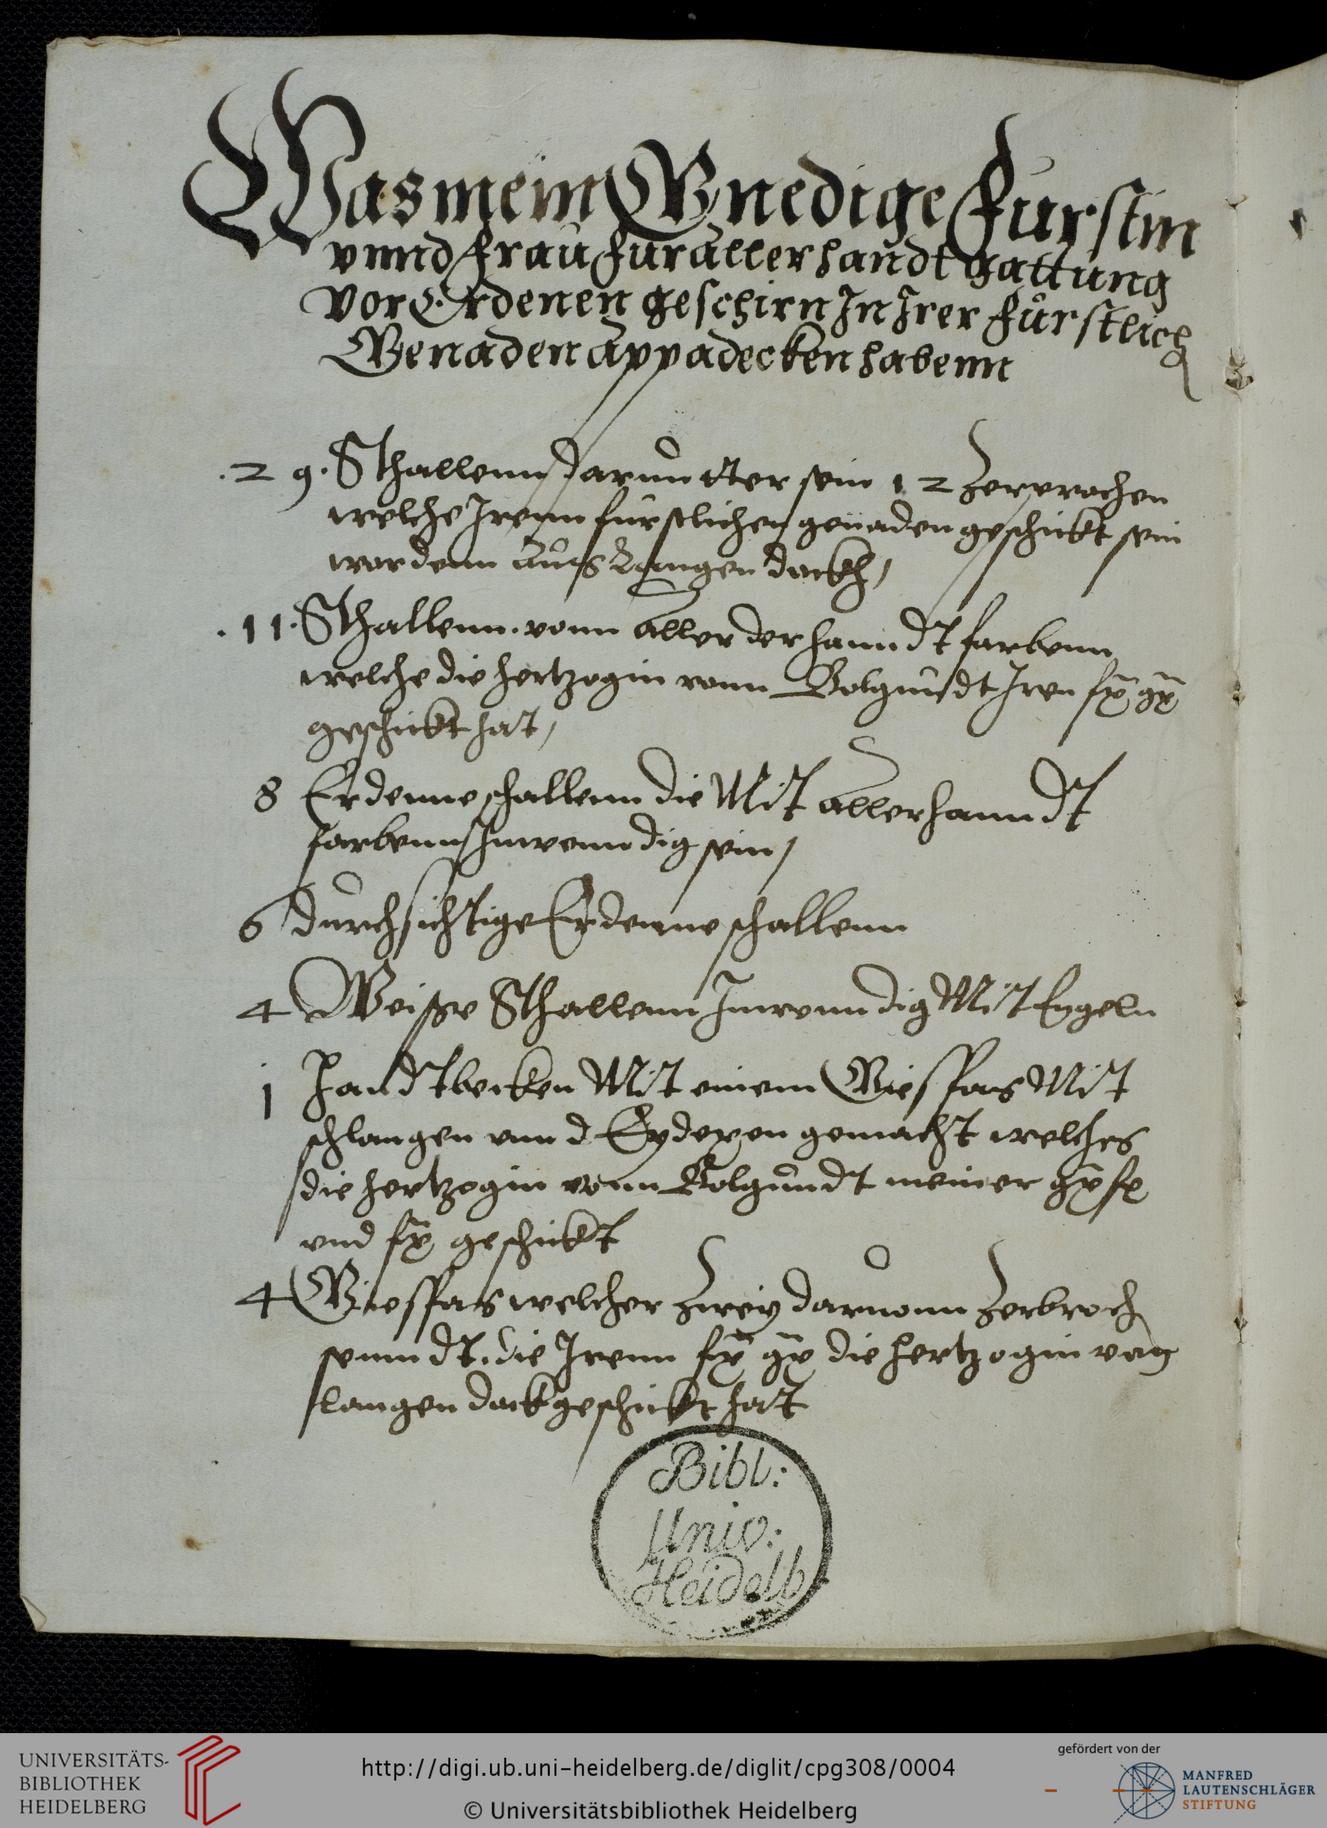 Was mein Gnedige Furstin
vnnd Frau fur allerhandt gattung
vor Erdenen geschirn In Irer Fürstlich
Genaden appadecken habenn
.29. Schallenn darundter sein 12 Zerprochen
welche Irenn furstlichen genaden geschickt sein
wordenn aus Langendockh /
.11. Schallenn vonn aller der hanndt farbenn
welche die hertzogin vonn Bolgundt Iren fg gn
geschickt hat /
8 Erdenne schallenn die Mit allerhanndt
farbenn Inwenndig sein /
6 durchsichtige Erdenne schallenn
4 Weisse Schallenn Inwenndig Mit Engeln
1 Handtbecken Mit einem Giesfas Mit
schlangen vnnd Eyderen gemacht welches
die hertzogin vonn Bolgundt meiner
vnd geschickt
4 Giesfas welcher Zwey daruonn Zerbroch
senndt. die Irenn die hertzogin von
langendock geschickt hat
Bibl:
Univ:
Heidelb
UNIVERSITÄTS-
BIBLIOTHEK
HEIDELBERG
http://digi.ub.uni-heidelberg.de/diglit/cpg308/0004
© Universitätsbibliothek Heidelberg
gefördert von der
MANFRED
LAUTENSCHLÄGER
STIFTUNG